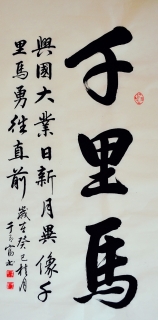 千里馬
興國大業日新月異像千
里馬勇往直前
歲在癸巳桂月